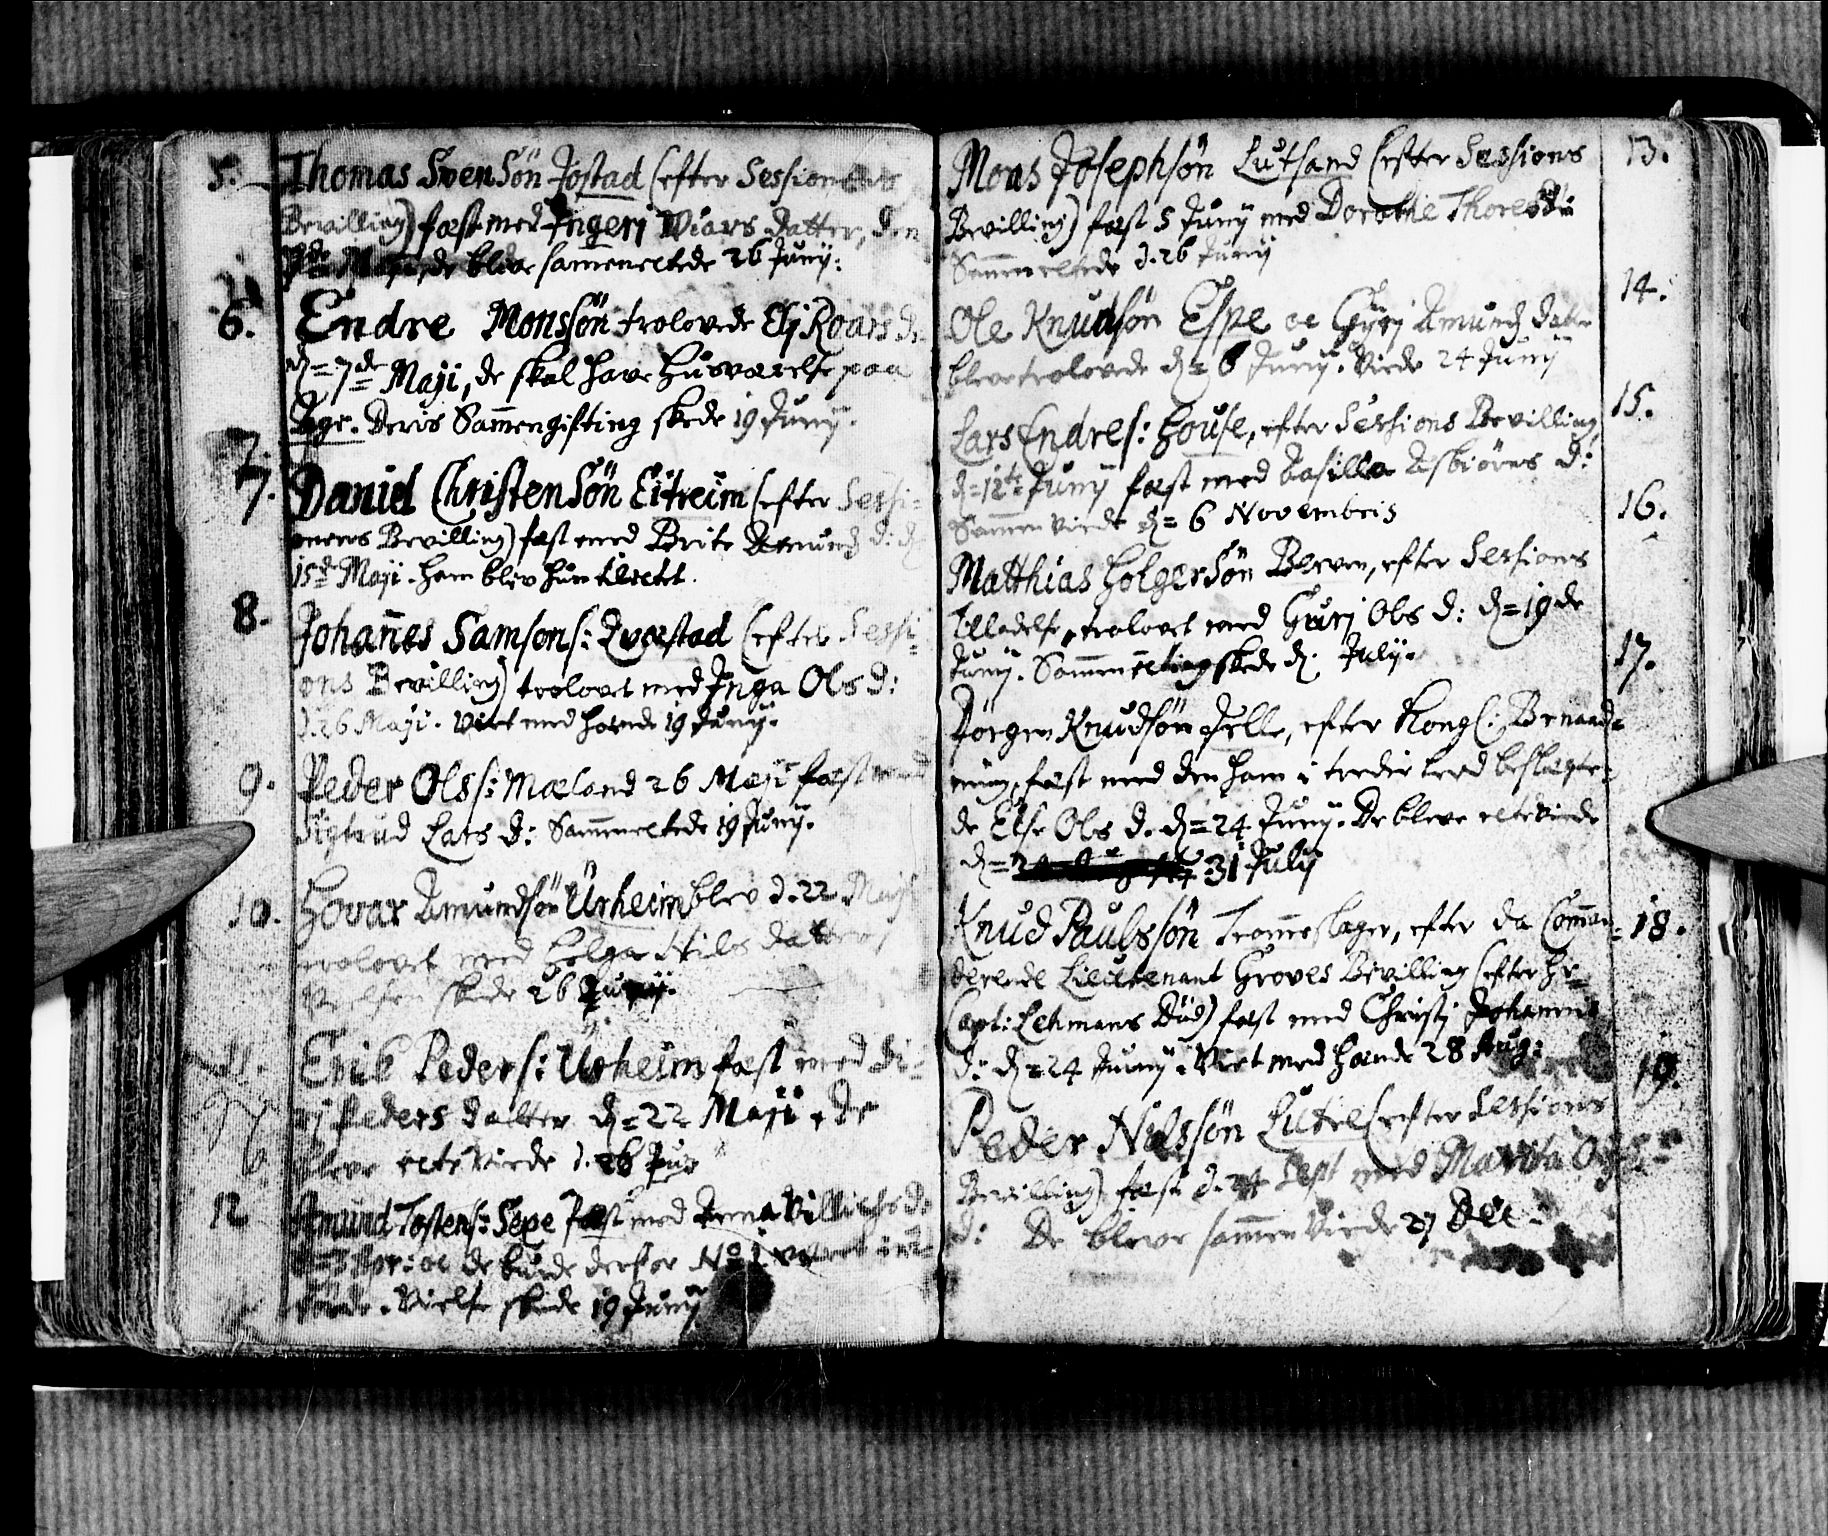 5. Thomas SvenSön Jostad (efter Sessionens
Bevilling) fæst med Ingerj Wiars datter, den
de bleve sammeneltede 26 Junij:
6. Endre Monssön trolovede Elj Roars d:
dn = 7de Maji, de skal have Huusværelse paa
Age. Deris Sam̄engifting skede 19 Junij.
7. Daniel ChristenSön Eitreim (efter Sessi-
onens Bevilling) fæst med Brite Amunds d: dn
15de Maji. Ham blev hun eltet.
8. Johan̄es Samsons: Qvæstad (efter Sessi-
ons Bevilling) trolovet med Inga Ols d:
d. 26 Maji. Viet med hænde 19 Junij.
9. Peder Olss: Mæland 26 Maji fæst med
Sigtrud Lars d: Sam̄eneltede 19 Junij.
10. Hovar Amundsön Urheim blev d. 22 Maji
trolovet med Helga Nils datter,
Vielsen skede 26 Junij.
11. Erik Peders: Urheim fæst med Si-
rj Peders datter dn = 22 Maji, de
bleve eltevirde d. 26 Jun
12 Amund Tostens: Sexe fæst med Villichs d:
dn = 3 Apr: oc de burde derfor No 1 været ind-
førde. Vielse skede 19 Junij
13. Mons Josephsön Lutsand (efter Sessions
Bevilling) fæst 5 Junij med Dorothe Thores d:
Sam̄eneltede d. 26 Junij
14. Ole Knudsön Espe oc Gyrj Amunds datter
bleve trolovede dn = 6 Junij. Viede 24 Junij
15. Lars Endres: House, efter Sessions Bevilling
dn = 12te Junij fæst med Rasilla Asbiörns d:
Sam̄en viede dn = 6 Novembris
16. Matthias HolgerSön Bleven, efter Sessions
Tilladelse, trolovet med Gurj Ols d: dn = 19de
Junij. Sam̄eneltingskede dn. Julij.
17. Jörgen Knudsön Jelle, efter Kongl: Benaad-
ning, fæst med den ham i tredie leed beslægte-
de Else Ols d. dn = 24 Junij. De bleve eltevirde
dn = 31 Julij
18. Knud Paulssön Trom̄eslager, efter da Com̄an-
derende Lieutenant Groves Bevilling (efter Hr
Capt: Lehmans Död) fæst med Christj Johannes
d: dn = 24 Junij. Viet med hænde 28 Aug:
19. Peder Nilssön Lutre (efter Sessions
Bevilling) fæst d. 24 Sept med Marita
d: De bleve sam̄en viede 27 Dec.